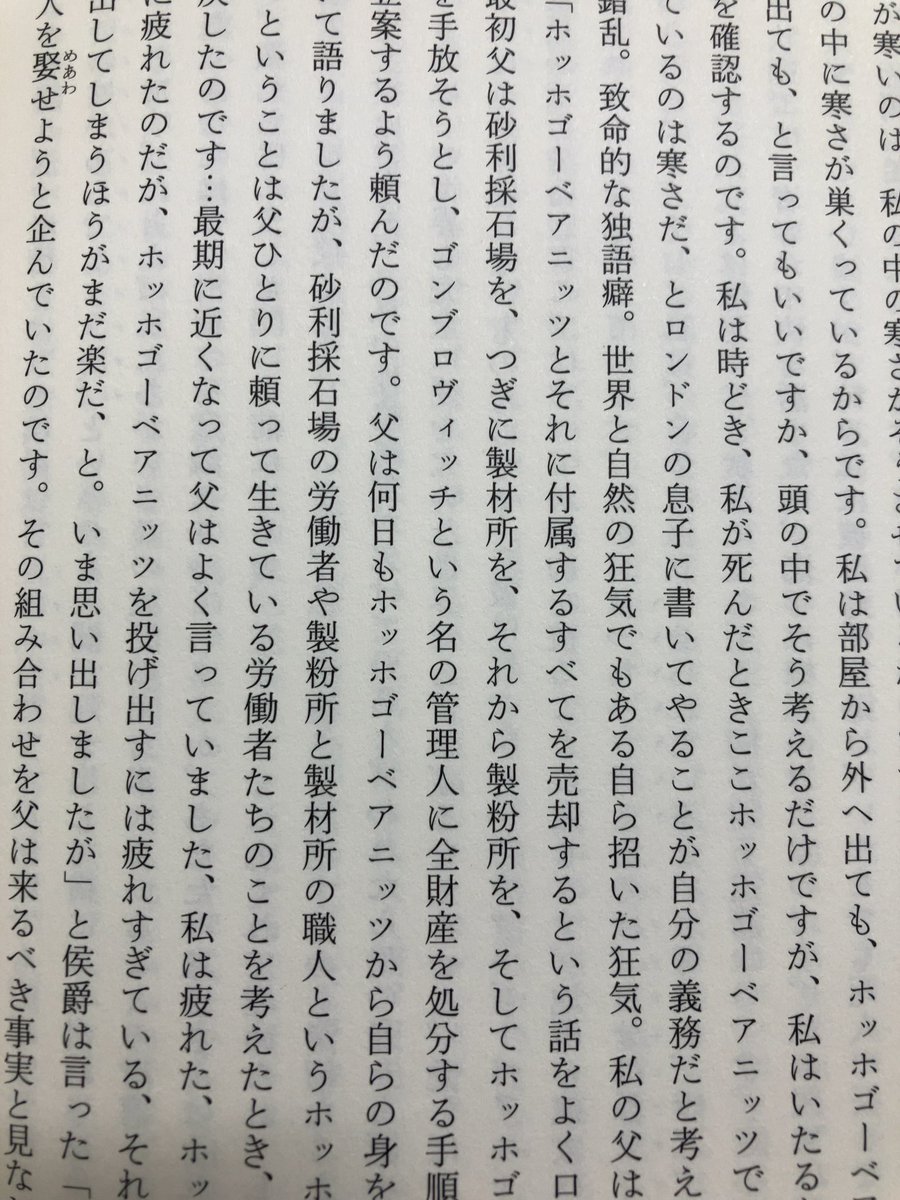 が寒いのは、私の中の寒さが
の中に寒さが巣くっているからです。私は部屋から外へ出ても、ホッホゴーベア
出ても、と言ってもいいですか、頭の中でそう考えるだけですが、私はいたる
を確認するのです。私は時どき、私が死んだときここホッホゴーベアニッツで
ているのは寒さだ、とロンドンの息子に書いてやることが自分の義務だと考え
錯乱。致命的な独語癖。世界と自然の狂気でもある自ら招いた狂気。私の父は
「ホッホゴーベアニッツとそれに付属するすべてを売却するという話をよく口
最初父は砂利採石場を、つぎに製材所を、それから製粉所を、そしてホッホゴ
を手放そうとし、ゴンブロヴィッチという名の管理人に全財産を処分する手順
立案するよう頼んだのです。父は何日もホッホゴーベアニッツから自らの身を
いて語りましたが、砂利採石場の労働者や製粉所と製材所の職人というホッホ
ということは父ひとりに頼って生きている労働者たちのことを考えたとき、
戻したのです…最期に近くなって父はよく言っていました、私は疲れた、ホッ
に疲れたのだが、ホッホゴーベアニッツを投げ出すには疲れすぎている、それ
出してしまうほうがまだ楽だ、と。いま思い出しましたが」と侯爵は言った「
人を娶せようと企んでいたのです。その組み合わせを父は来るべき事実と見な
めあわ